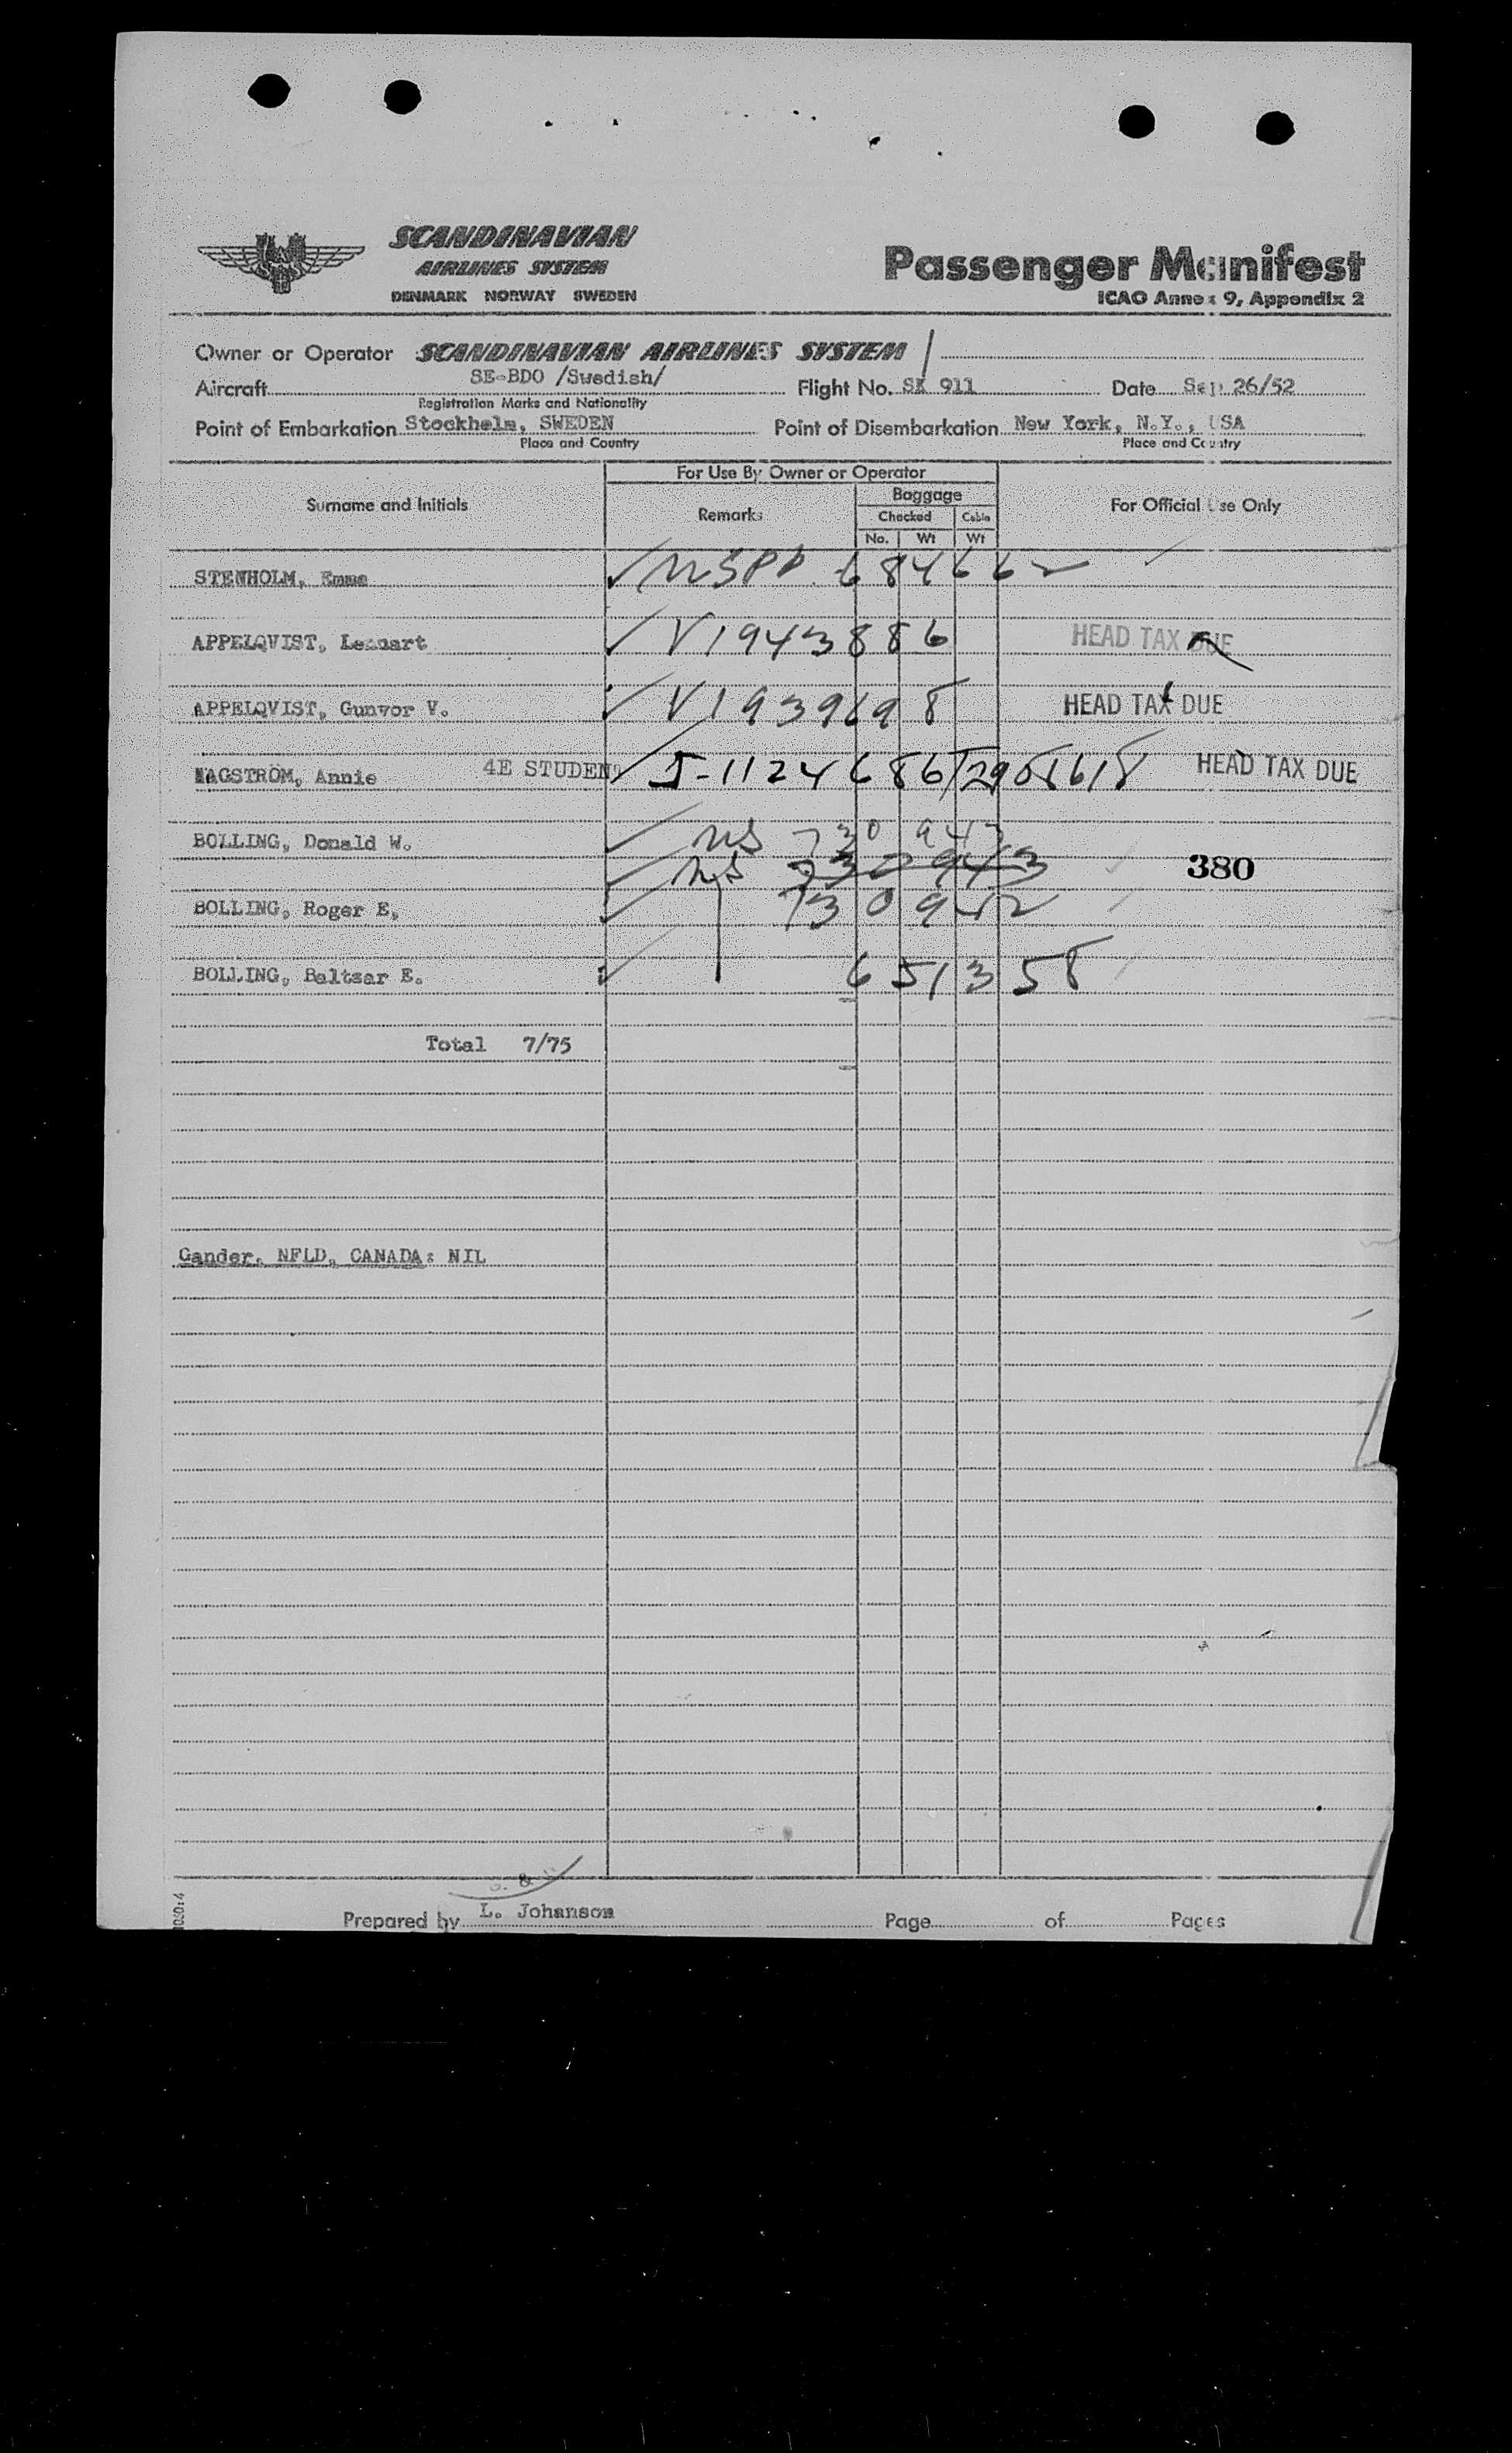 SCANDINAVIAN
AIRLINES SYSTEM
DENMARK NORWAY SWEDEN
Passenger Manifest
ICAO Annex 9, Appendix 2
Owner or Operator SCANDINAVIAN AIRLINES SYSTEM
Aircraft SE-BDO /Swedish/ Flight No. SK 911 Date Sep 26/52
Registration Marks and Nationality
Point of Embarkation Stockholm, SWEDEN Point of Disembarkation New York, N.Y., USA
Place and Country Place and Country
For Use By Owner or Operator
Surname and Initials Remarks Baggage For Official Use Only
Checked Cabin
No. Wt Wt
STENHOLM, Emma ✓ USPP 684662
APPELQVIST, Lennart ✓ V1943886 HEAD TAX DUE
APPELQVIST, Gunvor V. ✓ V1939698 HEAD TAX DUE
NAGSTRÖM, Annie 4E STUDENT ✓ J-1124686 HEAD TAX DUE
BOLLING, Donald W. ✓ US 730943
✓ US 730943 380
BOLLING, Roger E. ✓ 730942
BOLLING, Baltsar E. ✓ 651358
Total 7/75
Gander, NFLD, CANADA: NIL
Prepared by L. Johanson Page of Pages